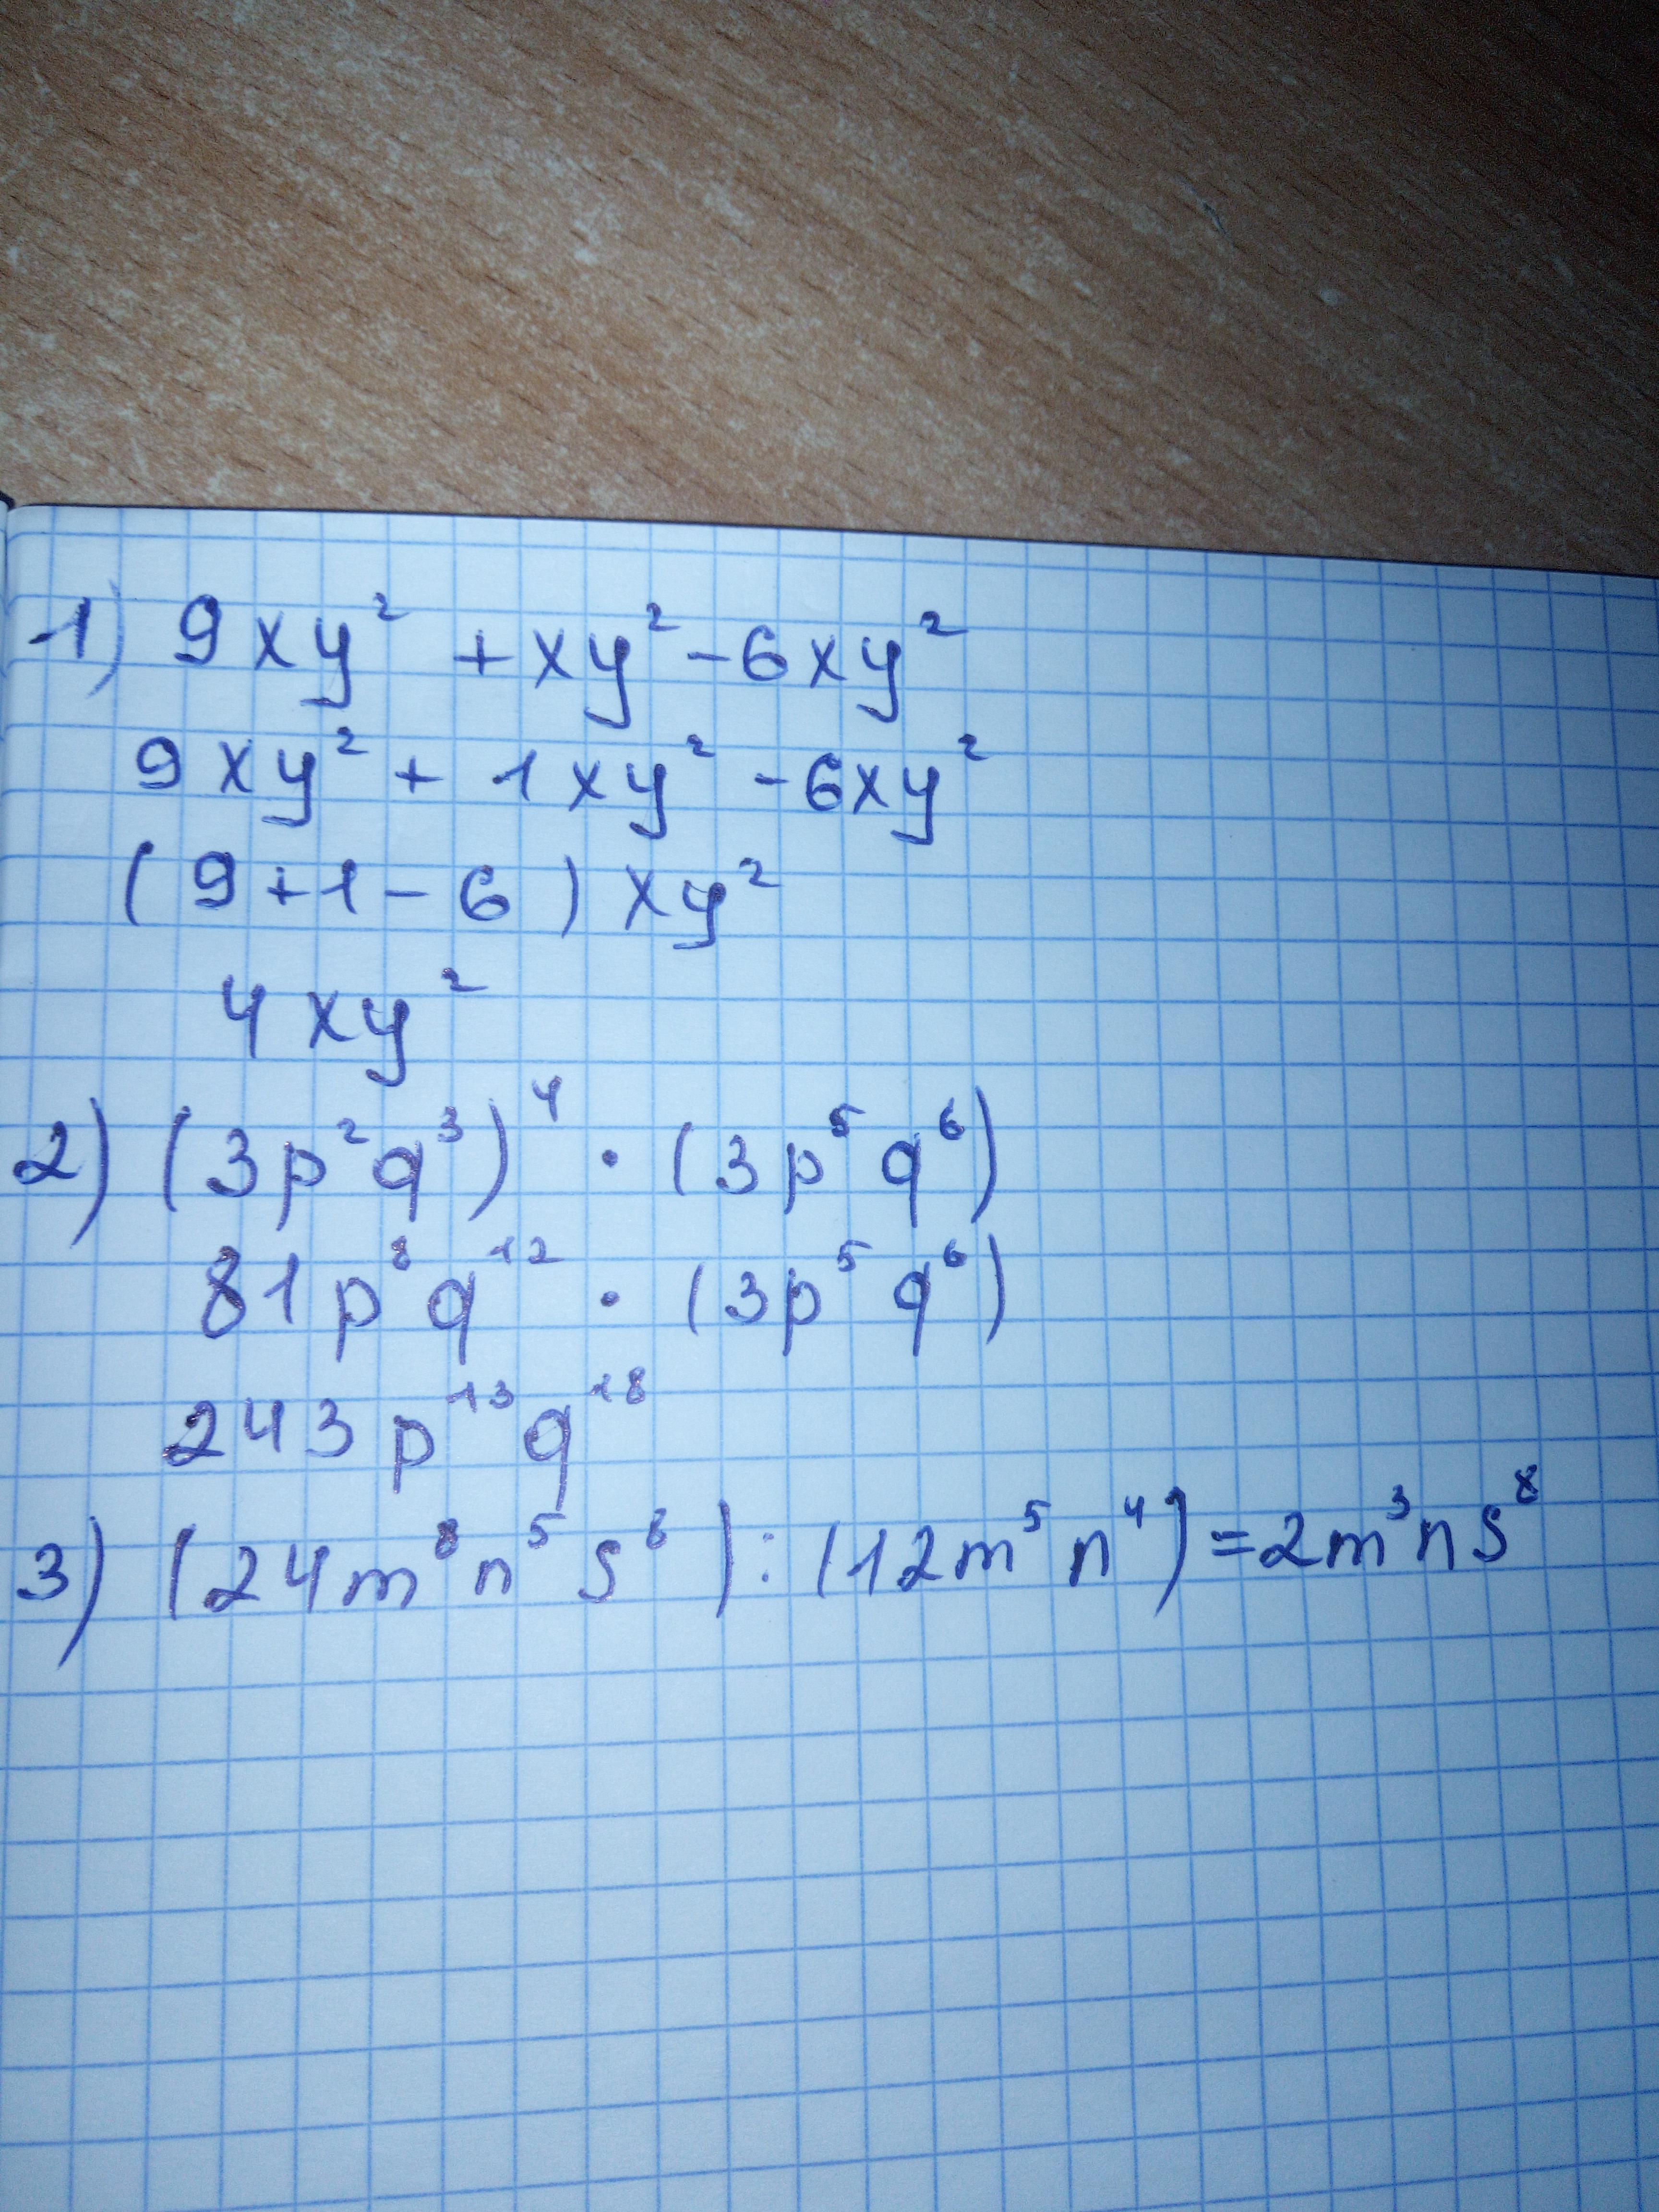 1) 9xy² + xy² - 6xy²
9xy² + 1xy² - 6xy²
(9+1-6)xy²
4xy²
2) (3p²q³)⁴ · (3p⁵q⁶)
81p⁸q¹² · (3p⁵q⁶)
243p¹³q¹⁸
3) (24m⁸n⁵s⁸) : (12m⁵n⁴) = 2m³ns⁸